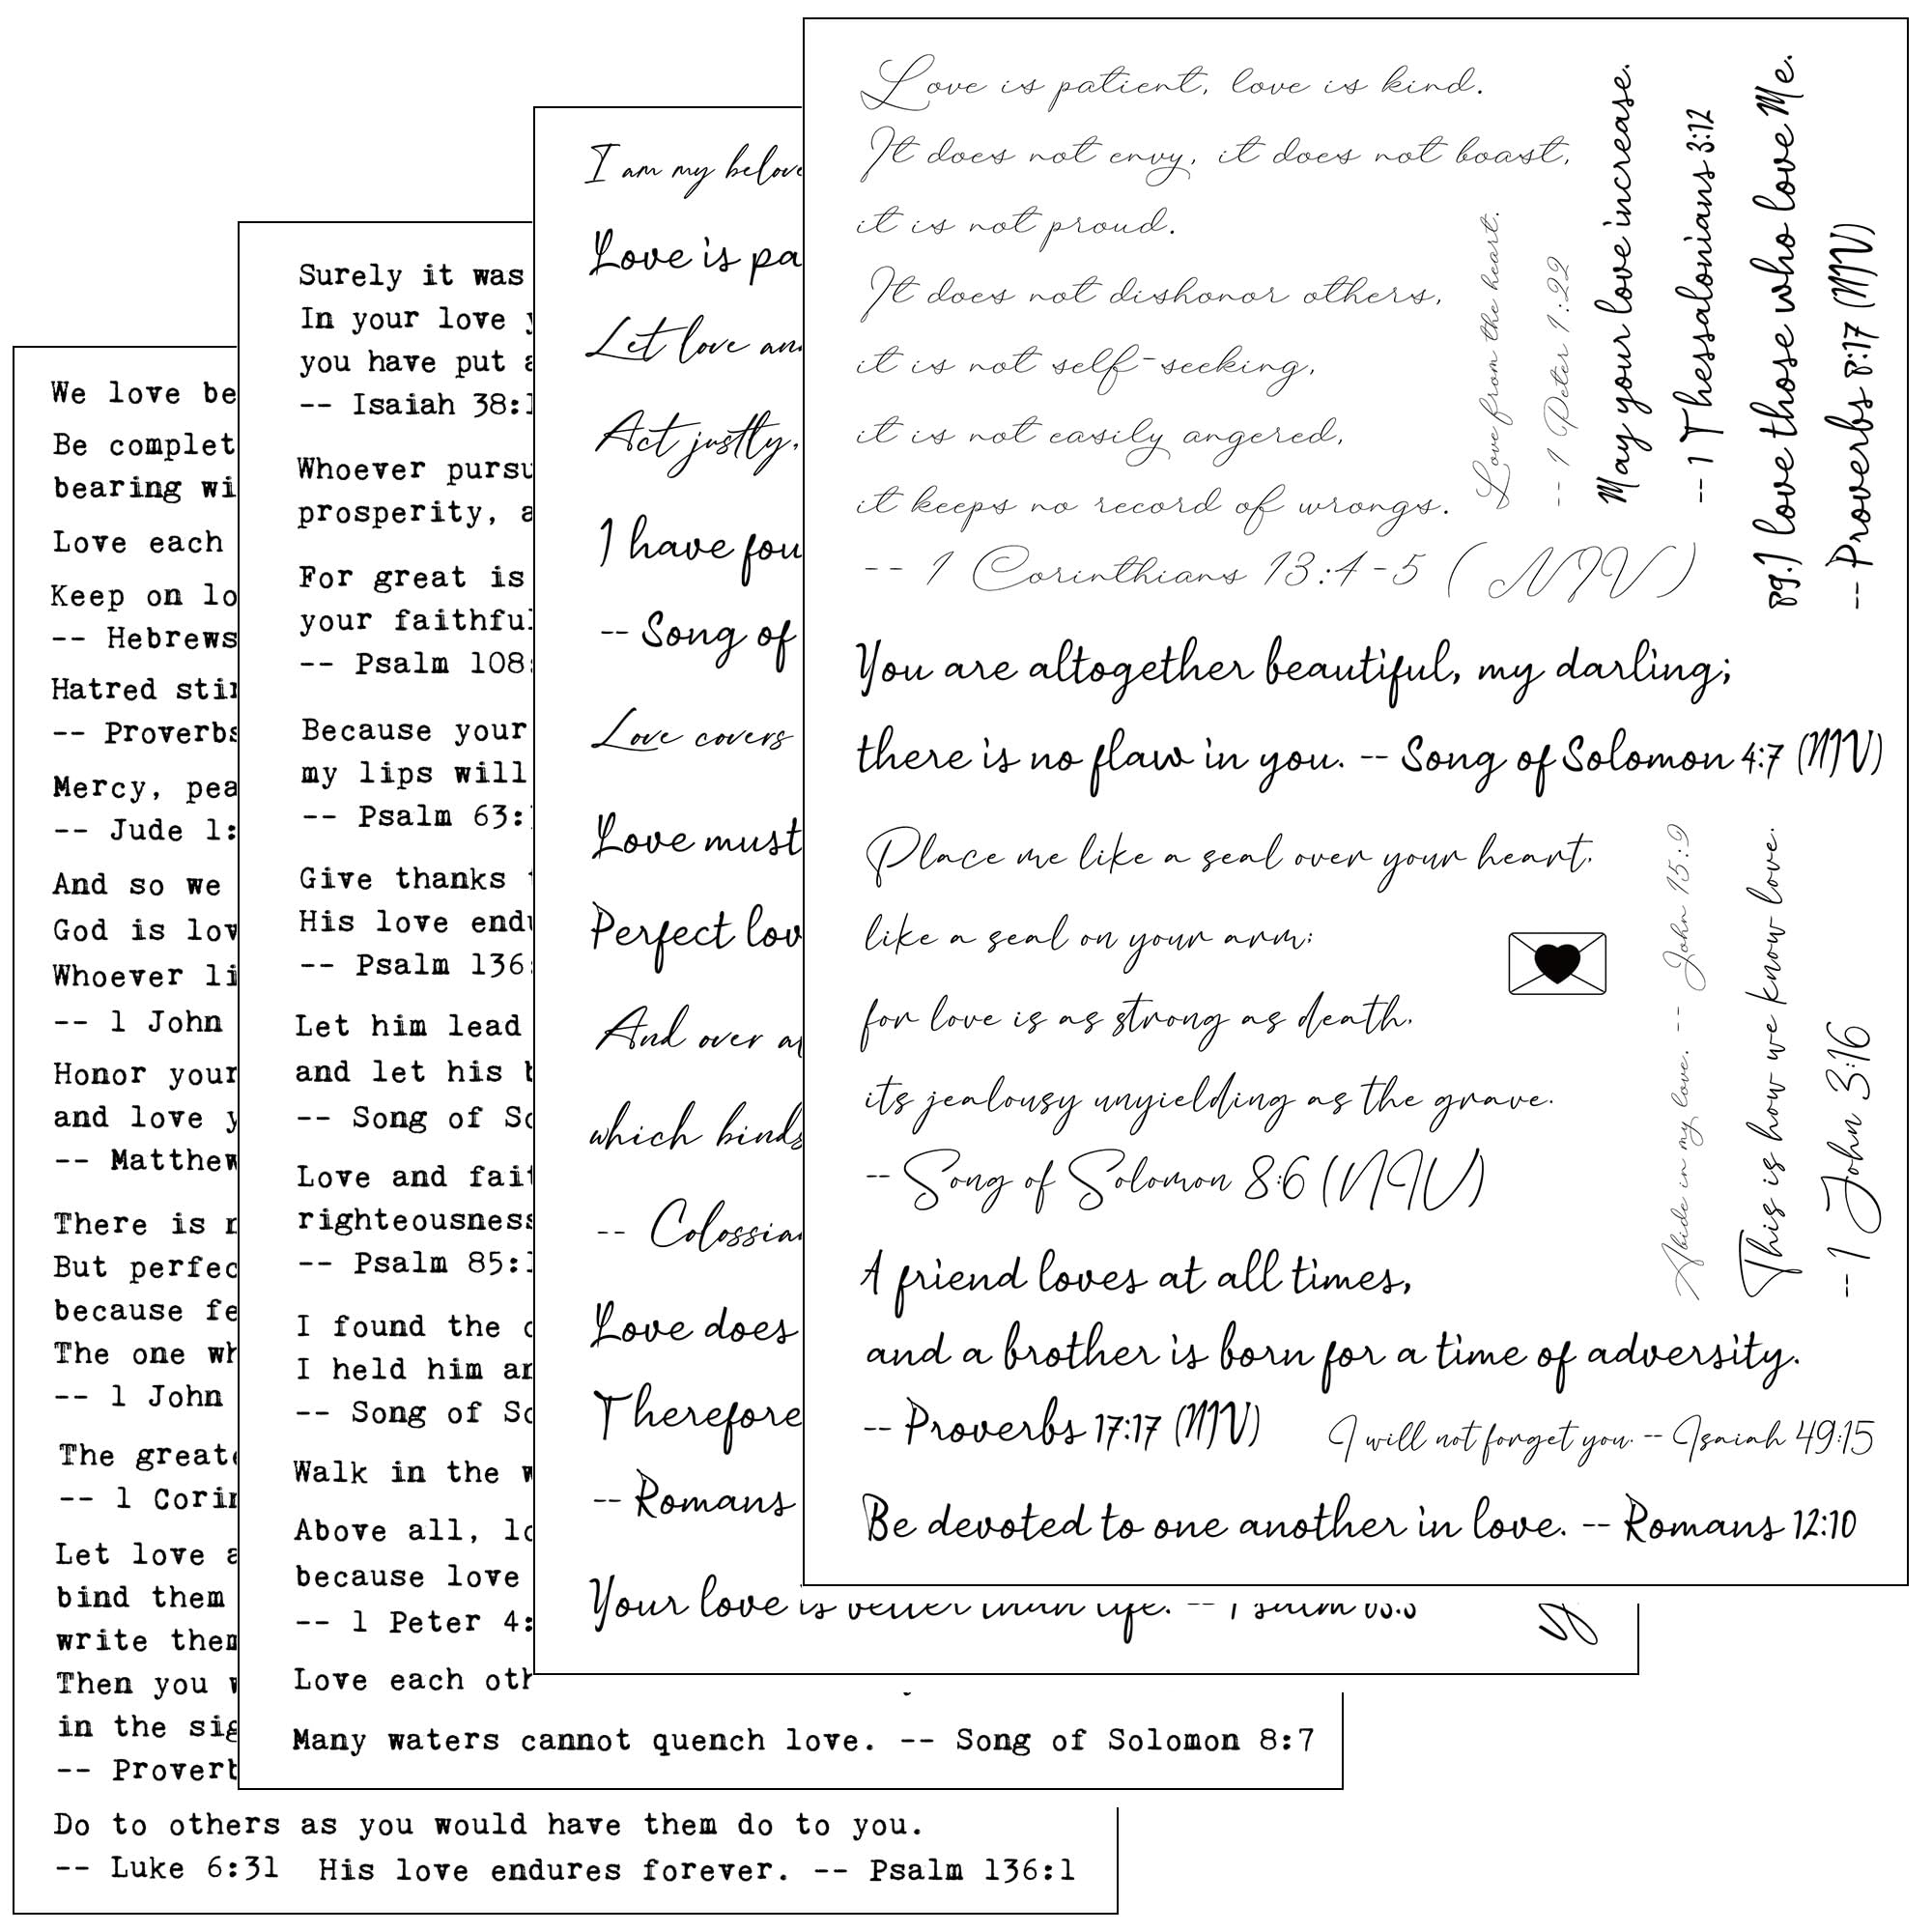 We love be
Be complet
bearing wi
Love each
Keep on lo
-- Hebrews
Hatred stir
-- Proverbs
Mercy, pea
-- Jude 1:
And so we
God is lov
Whoever li
-- 1 John
Honor your
and love y
-- Matthew
There is n
But perfec
because fe
The one wh
-- 1 John
The greate
-- 1 Corin
Let love a
bind them
write them
Then you w
in the sig
-- Proverb
Do to others as you would have them do to you.
-- Luke 6:31 His love endures forever. -- Psalm 136:1
Surely it was
In your love y
you have put a
-- Isaiah 38:1
Whoever pursu
prosperity, a
For great is
your faithful
-- Psalm 108:
Because your
my lips will
-- Psalm 63:
Give thanks
His love endu
-- Psalm 136:
Let him lead
and let his b
-- Song of So
Love and fait
righteousness
-- Psalm 85:1
I found the o
I held him an
-- Song of So
Walk in the w
Above all, lo
because love
-- 1 Peter 4:
Love each oth
Many waters cannot quench love. -- Song of Solomon 8:7
I am my belove
Love is pa
Let love an
Act justly,
I have fou
-- Song of
Love covers
Love must
Perfect lov
And over al
which binds
-- Colossian
Love does
Therefore
-- Romans
Your love is better than life. -- Psalm 63:3
Love is patient, love is kind.
It does not envy, it does not boast,
it is not proud.
It does not dishonor others,
it is not self-seeking,
it is not easily angered,
it keeps no record of wrongs.
-- 1 Corinthians 13:4-5 (NIV)
Love from the heart.
-- 1 Peter 1:22
May your love increase.
-- 1 Thessalonians 3:12
89.I love those who love Me.
-- Proverbs 8:17 (NIV)
You are altogether beautiful, my darling;
there is no flaw in you. -- Song of Solomon 4:7 (NIV)
Place me like a seal over your heart,
like a seal on your arm;
for love is as strong as death,
its jealousy unyielding as the grave.
-- Song of Solomon 8:6 (NIV)
Abide in my love. -- John 15:9
This is how we know love.
-- 1 John 3:16
A friend loves at all times,
and a brother is born for a time of adversity.
-- Proverbs 17:17 (NIV)
I will not forget you. -- Isaiah 49:15
Be devoted to one another in love. -- Romans 12:10